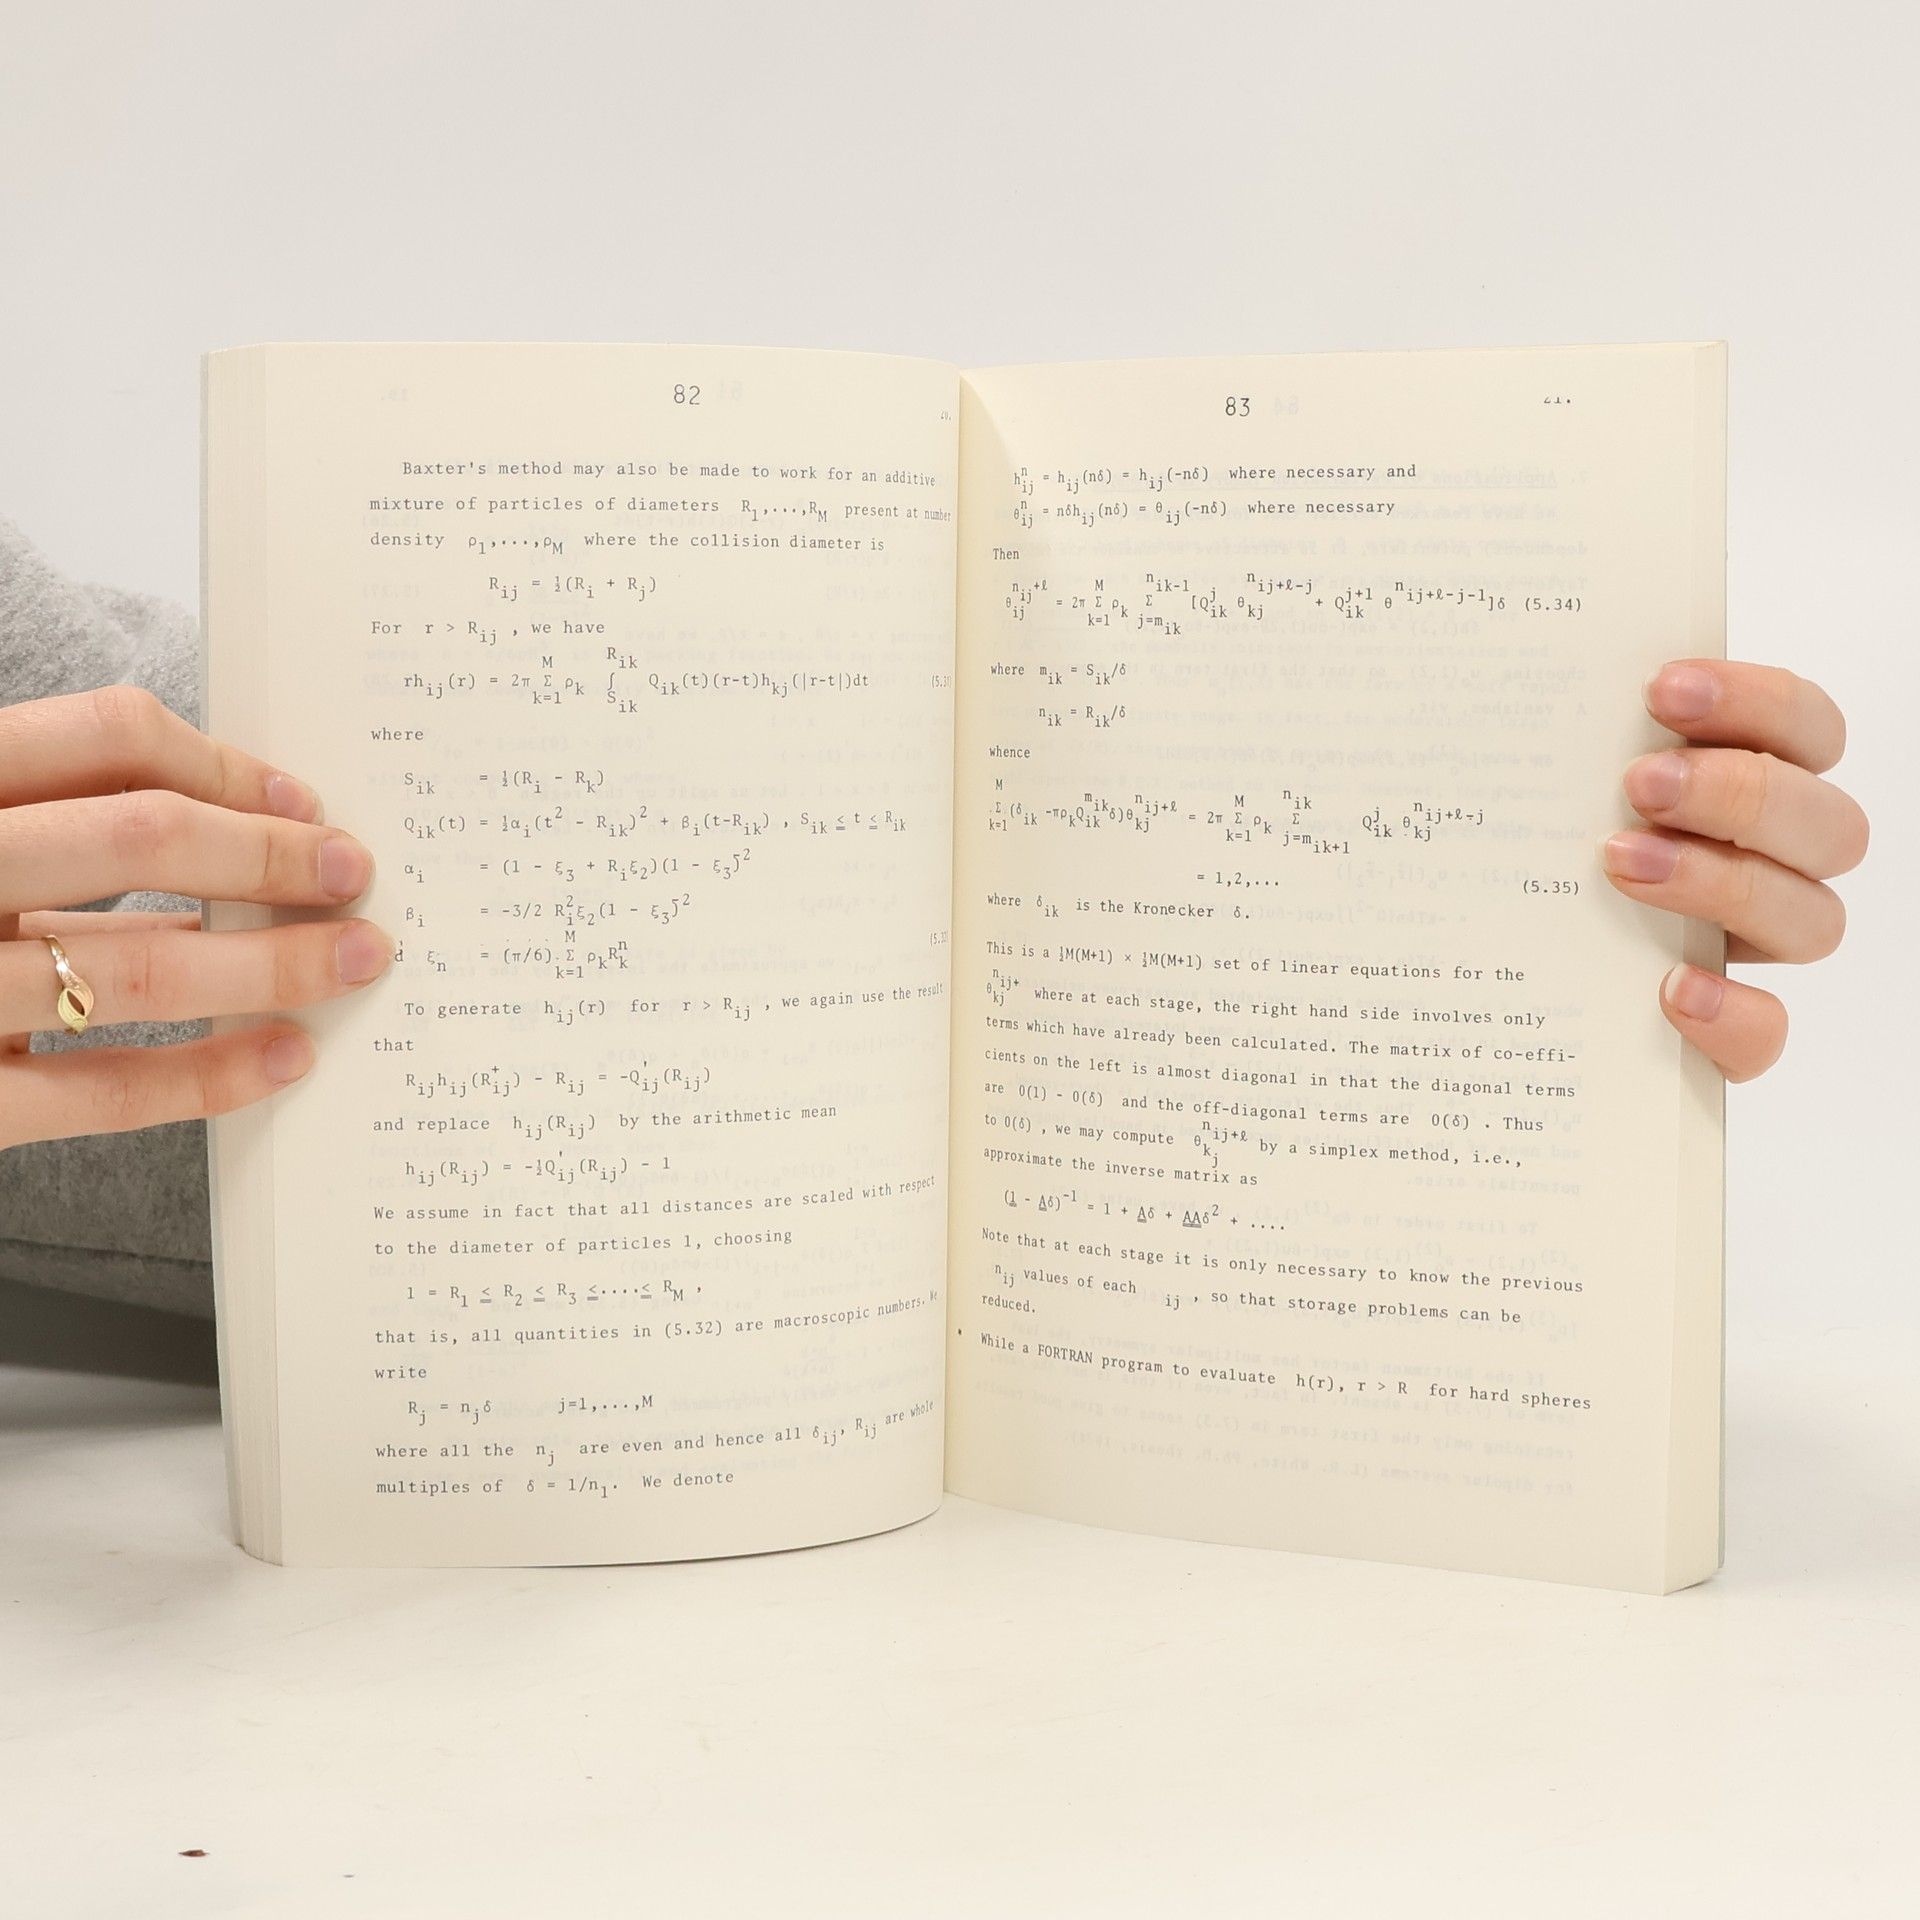 82
Baxter's method may also be made to work for an additive
mixture of particles of diameters R₁,...,R_M present at number
density ρ₁,...,ρ_M where the collision diameter is
R_ij = ½(R_i + R_j)
For r > R_ij , we have
rh_ij(r) = 2π Σ_{k=1}^{M} ρ_k ∫_{S_ik}^{R_ik} Q_ik(t)(r-t)h_kj(|r-t|)dt
where
S_ik = ½(R_i - R_k)
Q_ik(t) = ½α_i(t² - R_ik)² + β_i(t-R_ik) , S_ik ≤ t ≤ R_ik
α_i = (1 - ξ₃ + R_iξ₂)(1 - ξ₃)⁻²
β_i = -3/2 R_i²ξ₂(1 - ξ₃)⁻²
d ξ_n = (π/6) Σ_{k=1}^{M} ρ_kR_k^n
To generate h_ij(r) for r > R_ij , we again use the result
that
R_ijh_ij(R_ij^+) - R_ij = -Q'_ij(R_ij)
and replace h_ij(R_ij) by the arithmetic mean
h_ij(R_ij) = -½Q'_ij(R_ij) - 1
We assume in fact that all distances are scaled with respect
to the diameter of particles 1, choosing
1 = R₁ ≤ R₂ ≤ R₃ ≤....≤ R_M ,
that is, all quantities in (5.32) are macroscopic numbers. We
write
R_j = n_jδ j=1,...,M
where all the n_j are even and hence all δ_ij, R_ij are whole
multiples of δ = 1/n₁. We denote
83
21.
h_ij^n = h_ij(nδ) = h_ij(-nδ) where necessary and
θ_ij^n = nδh_ij(nδ) = θ_ij(-nδ) where necessary
Then
θ_ij^{n_ij+ℓ} = 2π Σ_{k=1}^{M} ρ_k Σ_{j=m_ik}^{n_ik-1} [Q_ik^j θ_kj^{n_ij+ℓ-j} + Q_ik^{j+1} θ^{n_ij+ℓ-j-1}]δ (5.34)
where m_ik = S_ik/δ
n_ik = R_ik/δ
whence
Σ_{k=1}^{M} (δ_ik -πρ_kQ_ik^{m_ik}δ)θ_kj^{n_ij+ℓ} = 2π Σ_{k=1}^{M} ρ_k Σ_{j=m_ik+1}^{n_ik} Q_ik^j θ_kj^{n_ij+ℓ-j}
= 1,2,... (5.35)
where δ_ik is the Kronecker δ.
This is a ½M(M+1) × ½M(M+1) set of linear equations for the
θ_kj^{n_ij+} where at each stage, the right hand side involves only
terms which have already been calculated. The matrix of co-effi-
cients on the left is almost diagonal in that the diagonal terms
are 0(1) - 0(δ) and the off-diagonal terms are 0(δ) . Thus
to 0(δ) , we may compute θ_{kj}^{n_ij+ℓ} by a simplex method, i.e.,
approximate the inverse matrix as
(1 - Aδ)⁻¹ = 1 + Aδ + AAδ² + ....
Note that at each stage it is only necessary to know the previous
n_ij values of each ij , so that storage problems can be
reduced.
While a FORTRAN program to evaluate h(r), r > R for hard spheres